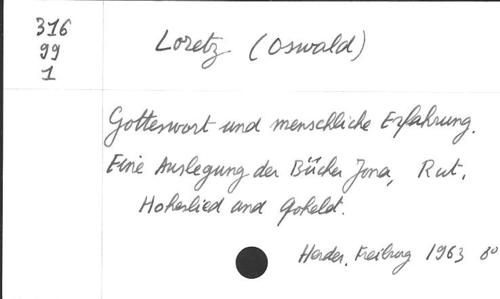 316
99
1
Loretz (Oswald)
Gotteswort und menschliche Erfahrung.
Eine Auslegung der Bücher Jona, Rut,
Hoheslied und Qohelet.
Herder, Freiburg 1963 8°